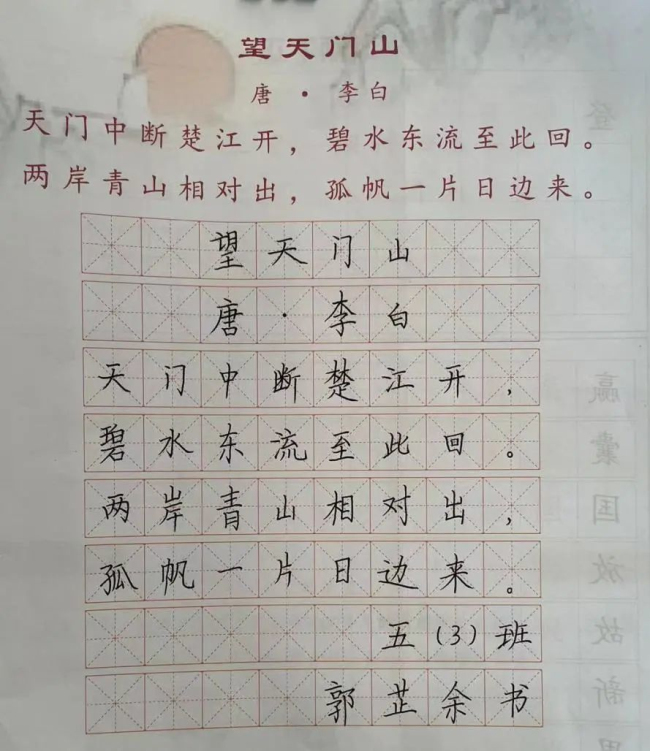 望天门山
唐·李白
天门中断楚江开，碧水东流至此回。
两岸青山相对出，孤帆一片日边来。
望天门山
唐·李白
天门中断楚江开，
碧水东流至此回。
两岸青山相对出，
孤帆一片日边来。
五(3)班
郭芷余书